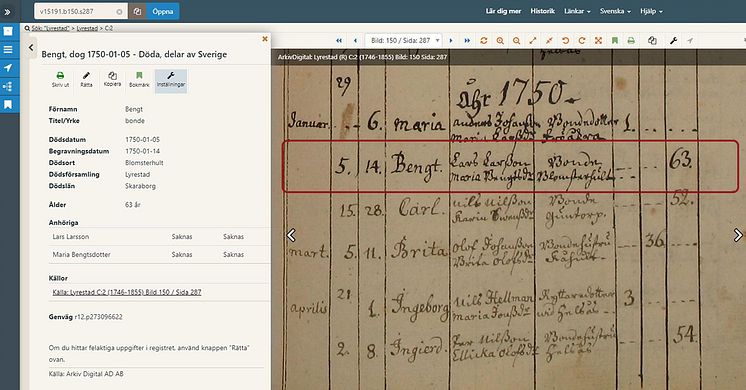 v15191.b150.s287
Öppna
Lär dig mer
Historik
Länkar
Svenska
Hjälp
Sök: "Lyrestad" > Lyrestad > C:2
Bild: 150 / Sida: 287
Bengt, dog 1750-01-05 - Döda, delar av Sverige
ArkivDigital: Lyrestad (R) C:2 (1746-1855) Bild: 150 Sida: 287
Skriv ut
Rätta
Kopiera
Bokmärk
Inställningar
Förnamn Bengt
Titel/Yrke bonde
Dödsdatum 1750-01-05
Begravningsdatum 1750-01-14
Dödsort Blomsterhult
Dödsförsamling Lyrestad
Dödslän Skaraborg
Ålder 63 år
Anhöriga
Lars Larsson Saknas Saknas
Maria Bengtsdotter Saknas Saknas
Källor
Källa: Lyrestad C:2 (1746-1855) Bild 150 / Sida 287
Genväg r12.p273096622
Om du hittar felaktiga uppgifter i registret. använd knappen "Rätta"
ovan.
Källa: Arkiv Digital AD AB
29
Åhr 1750.
Januar. 6. Maria Bondedotter 1.
5. 14. Bengt. Lars Larßon Bonde 63.
Maria Bengtsdr Blomsterhult
15. 28. Carl. Nils Nilßon Bonde 52.
Karin
mart. 5. 11. Brita Olof Bondehustru 36.
Brita Olofsdr
aprilis 21. 1. Ingeborg Nils Hellman Ryttaredotter 3
Maria
2. 8. Ingierd. Bondehustru 54.
Olofsdr